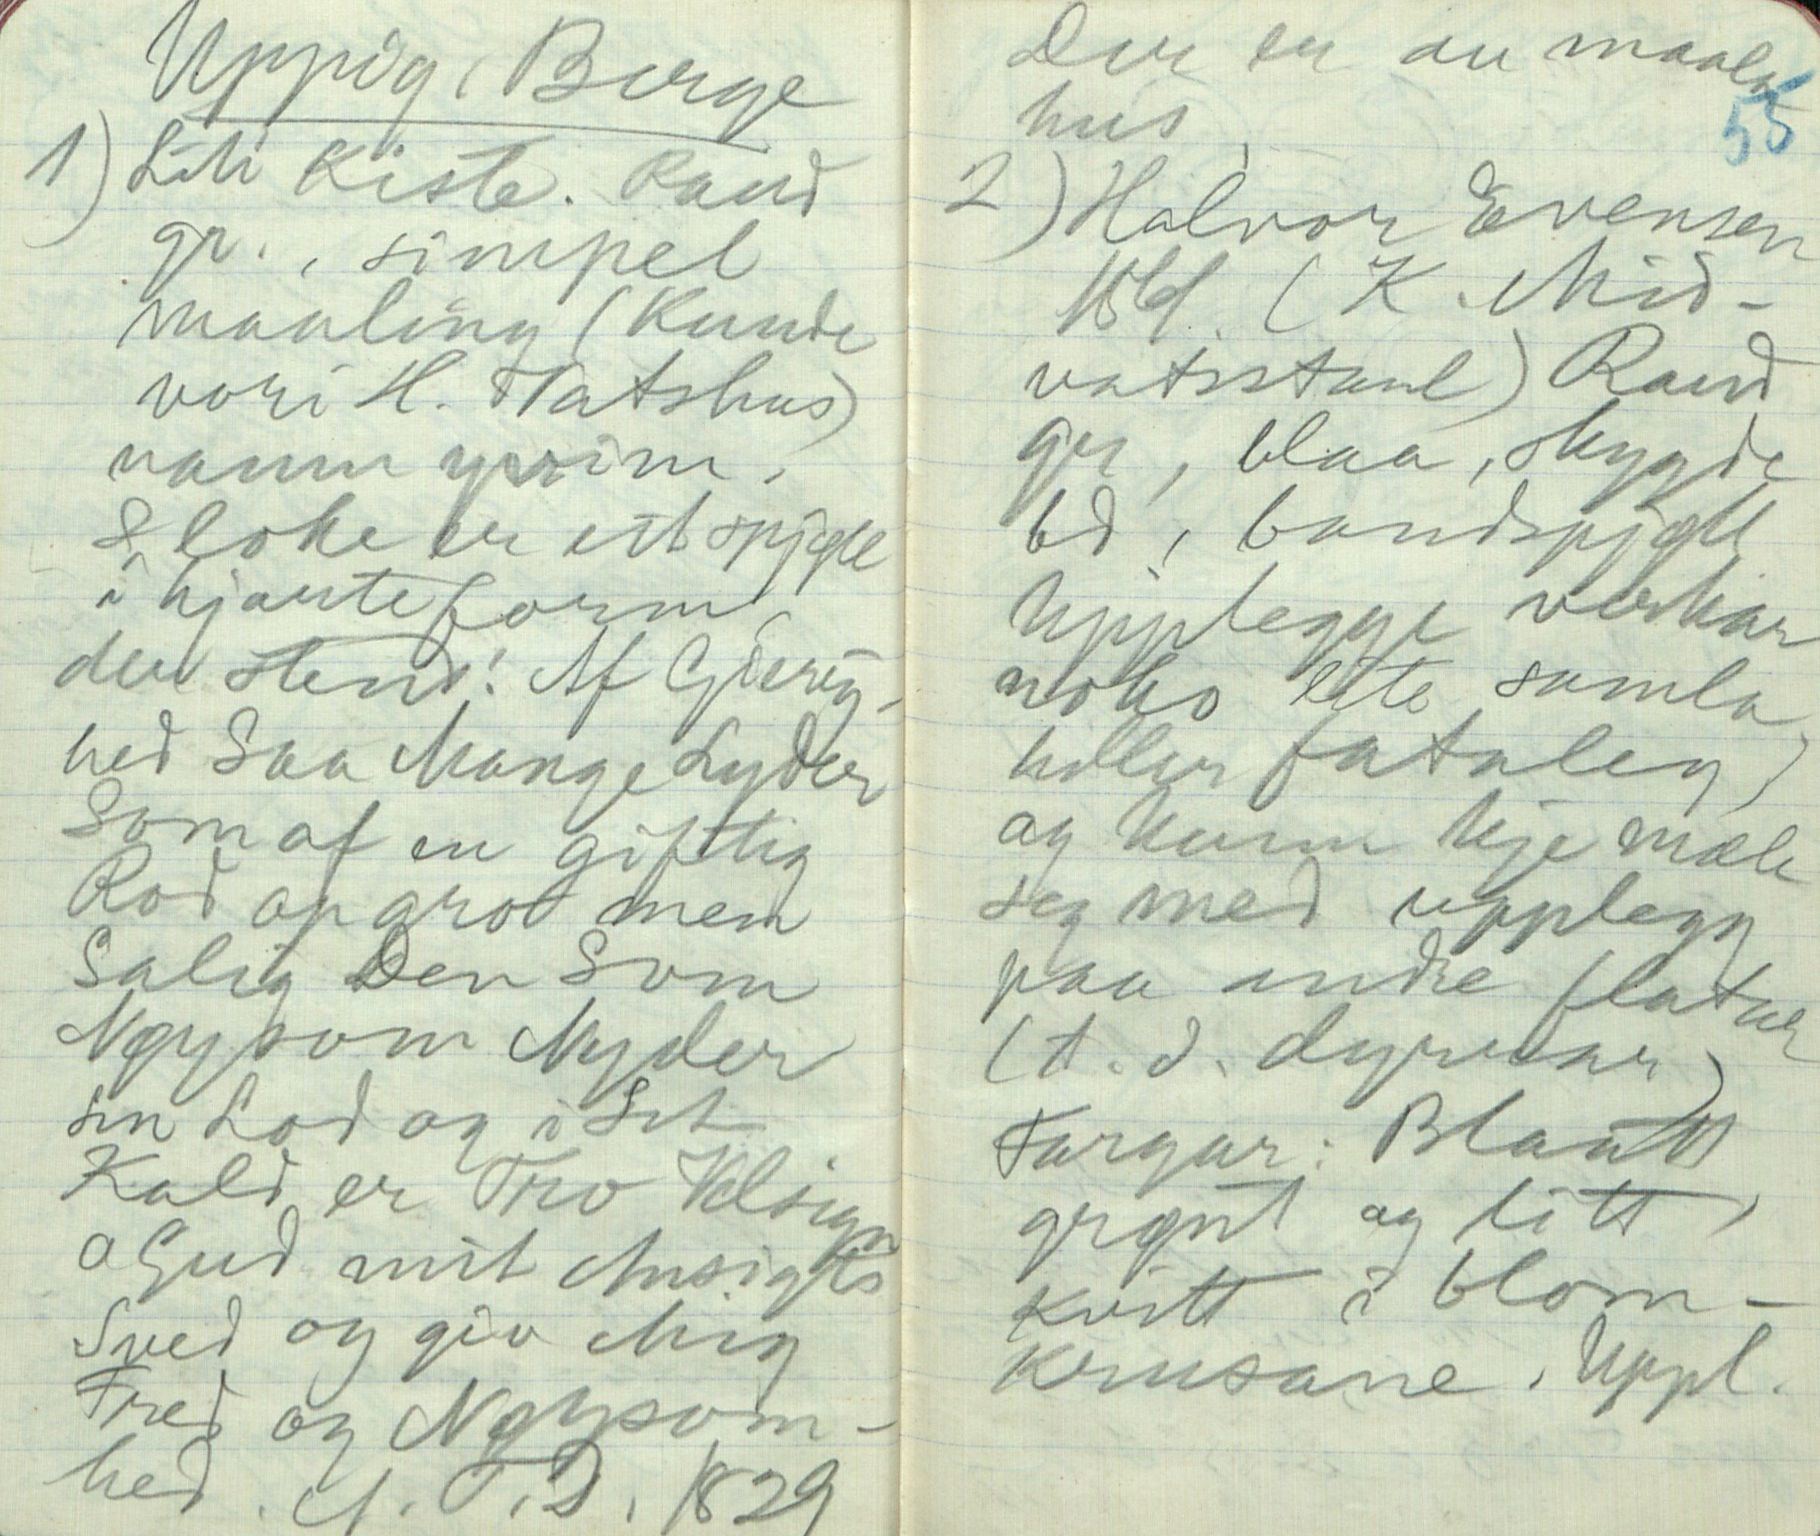 Uppigi Berge
1) Liti Kiste. Raud
gr., simpel
maaling (Kunde
vori H. Natshus)
namn yvi im.
I loke er eit spjøll
i hjarteform,
der stend: Af Gierig-
hed Saa Mange Lyder
Som af en giftig
Rod op grot men
Salig Den Som
Nøysom Nyder
sin Lod og i Sit
Kald er Tro Velsign
o Gud mit Ansigts
Sved og giv Mig
Fred og Nøysom-
hed. M. T. D. 1829
Der er au maala
hus
55
2) Halvor Evensen
(K. Mid-
vatsstaul) Raud
gr, blaa, skygde
bd, bandspjøll
Upplegge verkar
noko lite samla,
heller fataleg,
og kunn kje mæle
seg med upplegg
paa andre flatur
(t. d. dyrvear)
Fargar: Blaatt
grønt og litt
kvitt i blom-
krusane. Uppl.